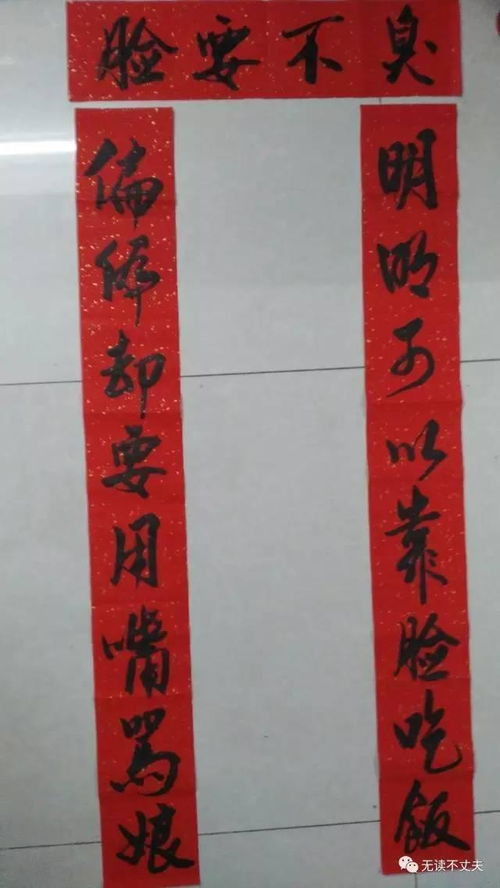 臭不要脸
明明可以靠脸吃飯
偏偏却要用嘴罵娘
无读不丈夫